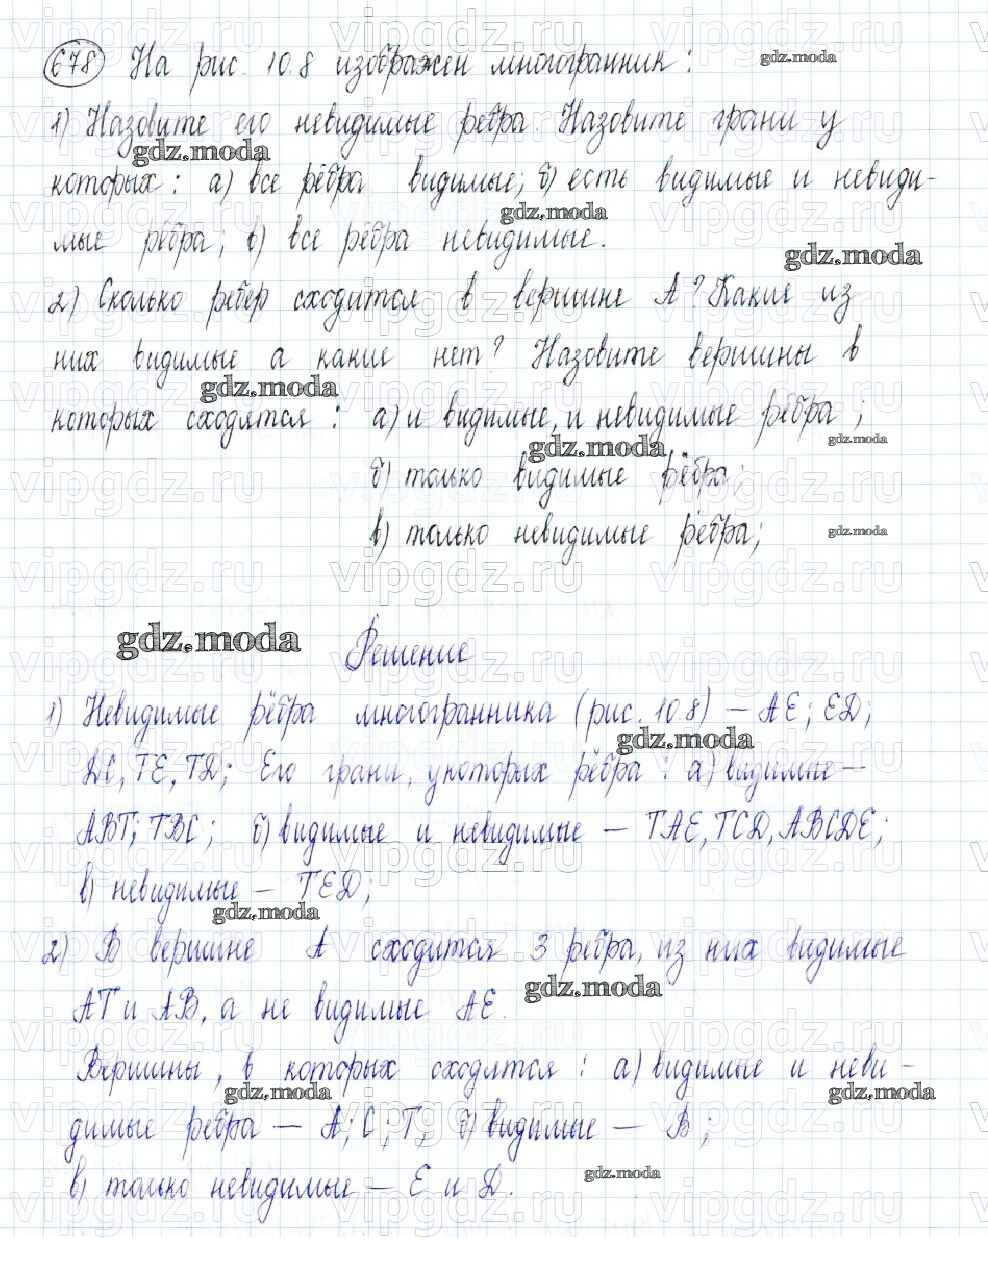 678 На рис. 10.8 изображен многогранник:
gdz.moda
1) Назовите его невидимые ребра. Назовите грани у
gdz.moda
которых: а) все рёбра видимые; б) есть видимые и невиди-
gdz.moda
мые рёбра; в) все рёбра невидимые.
gdz.moda
2) Сколько ребер сходится в вершине А? Какие из
них видимые а какие нет? Назовите вершины в
gdz.moda
которых сходятся: а) и видимые, и невидимые рёбра;
gdz.moda
gdz.moda
б) только видимые рёбра;
в) только невидимые рёбра;
gdz.moda
vipgdz.ru vipgdz.ru vipgdz.ru
gdz.moda
Решение
1) Невидимые рёбра многогранника (рис. 10.8) – AE; ED;
gdz.moda
DC, TE, TD; Его грани, у которых рёбра: а) видимые –
ABT; TBC; б) видимые и невидимые – TAE, TCD, ABCDE;
в) невидимые – TED;
gdz.moda
2) В вершине А сходится 3 ребра, из них видимые
gdz.moda
AT и AB, а не видимые AE.
Вершины, в которых сходятся: а) видимые и неви-
gdz.moda
gdz.moda
димые ребра – A; C; T, б) видимые – B;
gdz.moda
в) только невидимые – E и D.